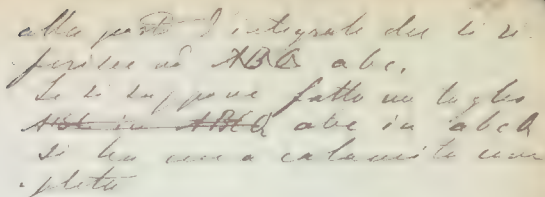 alla parte d'integrale che si ri
ferisce ad ABC abc.
Se si suppone fatto un taglio
abc in abcA
si ha una calamita com
pleta